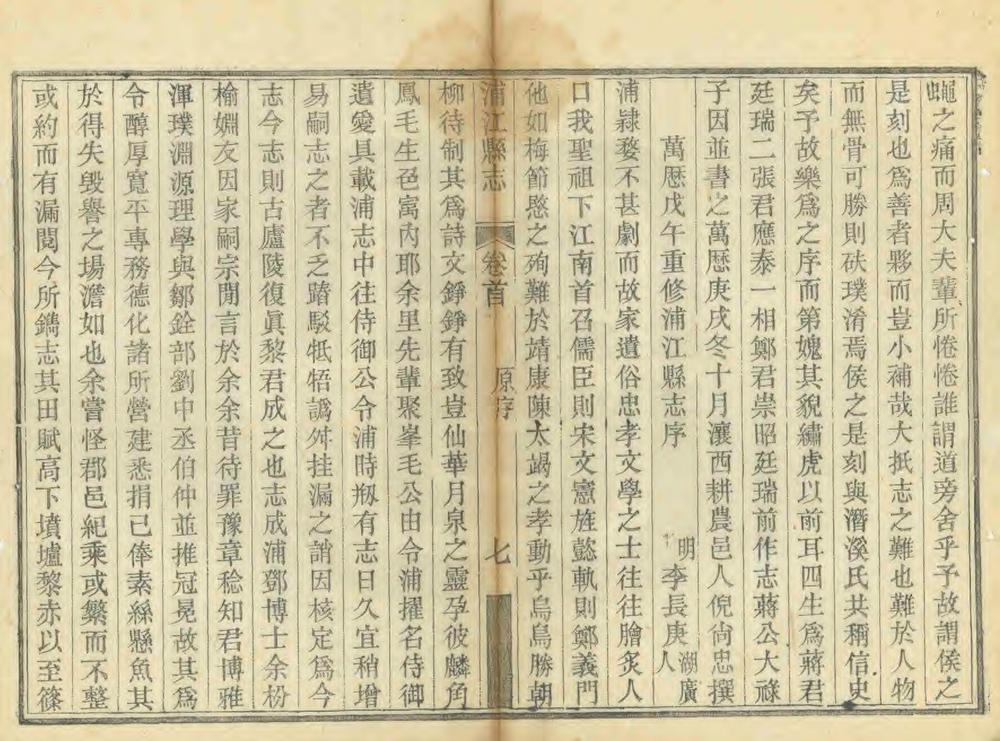 蠅之痛而周大夫輩所惓惓誰謂道旁舍乎予故謂侯之
是刻也爲善者夥而豈小補哉大抵志之難也難於人物
而無骨可勝則砆璞淆焉侯之是刻與潛溪氏共稱信史
矣予故樂爲之序而第媿其貌繡虎以前耳四生爲蔣君
廷瑞二張君應泰一相鄭君崇昭廷瑞前作志蔣公大祿
子因並書之萬歷庚戌冬十月瀼西耕農邑人倪尙忠撰
萬歷戊午重修浦江縣志序
明李長庚湖廣人
浦隸婺不甚劇而故家遺俗忠孝文學之士往往膾炙人
口我聖祖下江南首召儒臣則宋文憲旌懿軌則鄭義門
他如梅節愍之殉難於靖康陳太竭之孝動乎烏鳥勝朝
浦江縣志 卷首 原序 七
柳待制其爲詩文錚錚有致豈仙華月泉之靈孕彼麟角
鳳毛生色寓內耶余里先輩聚峯毛公由令浦擢名侍御
遺愛具載浦志中往侍御公令浦時剏有志日久宜稍增
易嗣志之者不乏踳駁牴牾譌舛挂漏之誚因核定爲今
志今志則古廬陵復眞黎君成之也志成浦鄧博士余枌
榆婣友因家嗣宗閒言於余余昔待罪豫章稔知君博雅
渾璞淵源理學與鄒銓部劉中丞伯仲並推冠冕故其爲
令醇厚寬平專務德化諸所營建悉捐己俸素絲懸魚其
於得失毀譽之場澹如也余嘗怪郡邑紀乘或繁而不整
或約而有漏閱今所鐫志其田賦高下墳壚黎赤以至篠